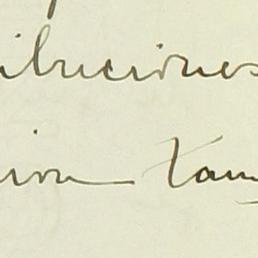 ibuciones
cion tam